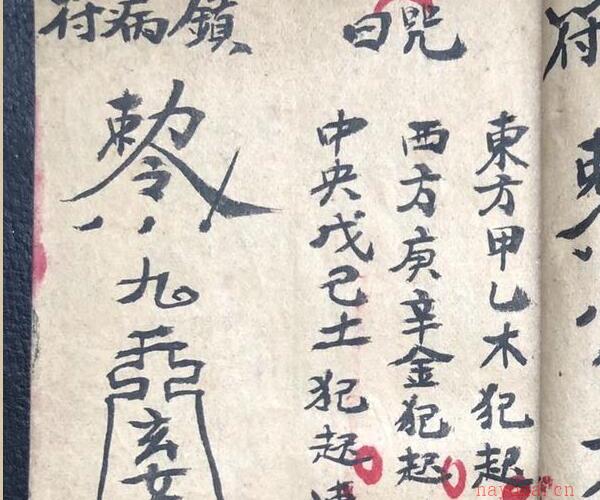 咒曰
東方甲乙木犯起
西方庚辛金犯起
中央戊己土犯起
鎮病符
敕令
八九
玄女
符